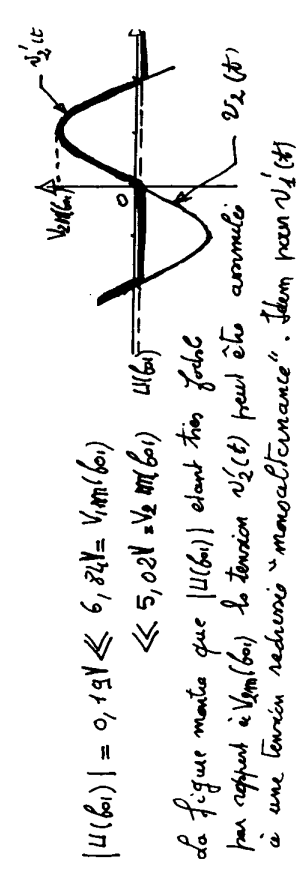 |U(f01)| = 0,19V ≪ 6,24V = V1m(f01)
≪ 5,02V = V2m(f01)
V2m(f01)
v2'(t)
0
U(f01)
v2(t)
La figure montre que |U(f01)| étant très faible
par rapport à V2m(f01) la tension v2'(t) peut être assimilée
à une tension redressée "monoalternance". Idem pour v1'(t)